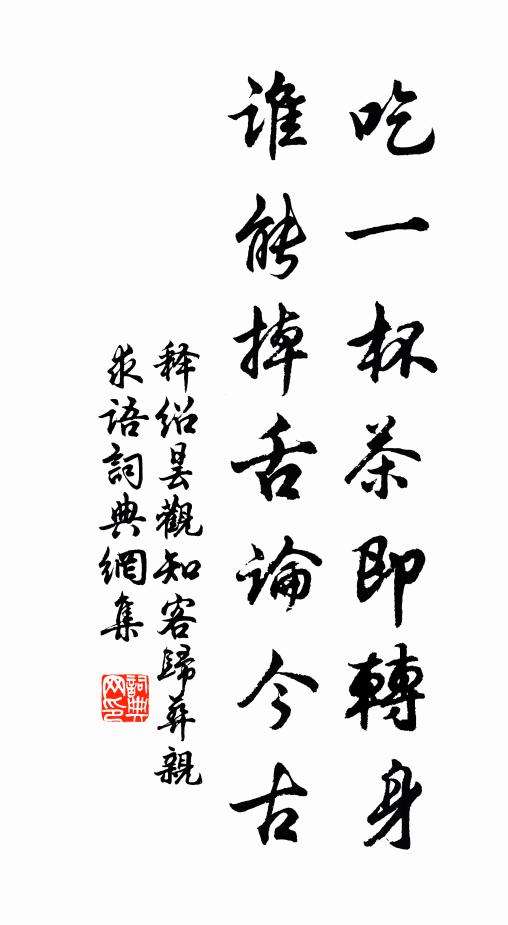 吃一杯茶即轉身
谁能掉舌論今古
释绍昙觀知客歸葬親
求语詞典網集
詞典
网印